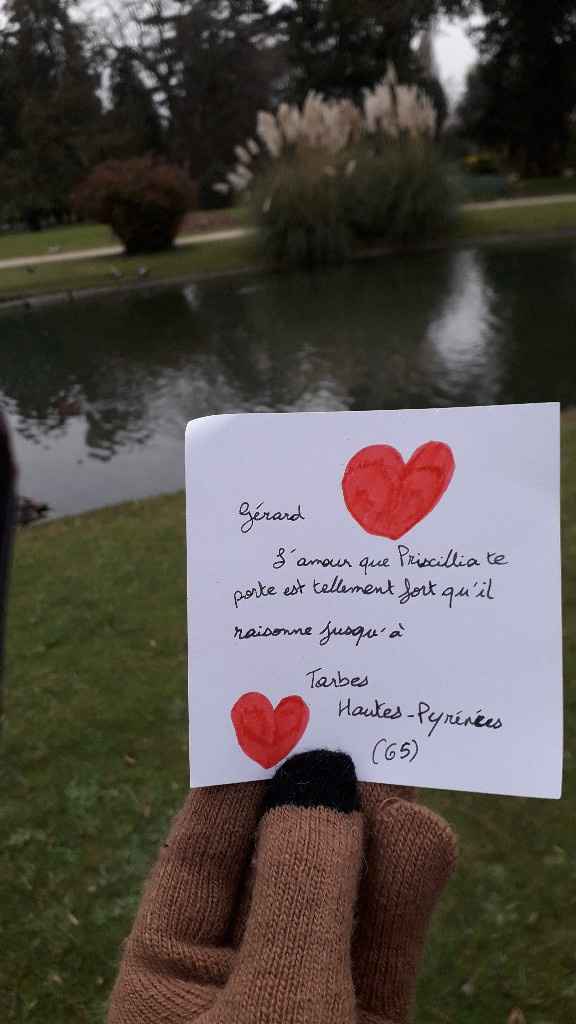 Gérard
L'amour que Priscillia te
porte est tellement fort qu'il
raisonne jusqu'à
Tarbes
Hautes-Pyrénées
(65)